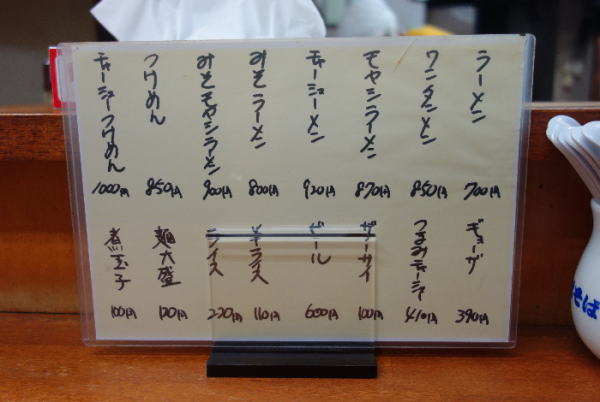 ラーメン 700円
ワンタンメン 850円
モヤシラーメン 870円
チャーシューメン 920円
みそラーメン 800円
みそモヤシラーメン 900円
つけめん 850円
チャーシューつけめん 1000円
ギョーザ 390円
つまみチャーシュー 410円
ザーサイ 100円
ビール 600円
半ライス 110円
ライス 220円
麺大盛 120円
煮玉子 100円
そば